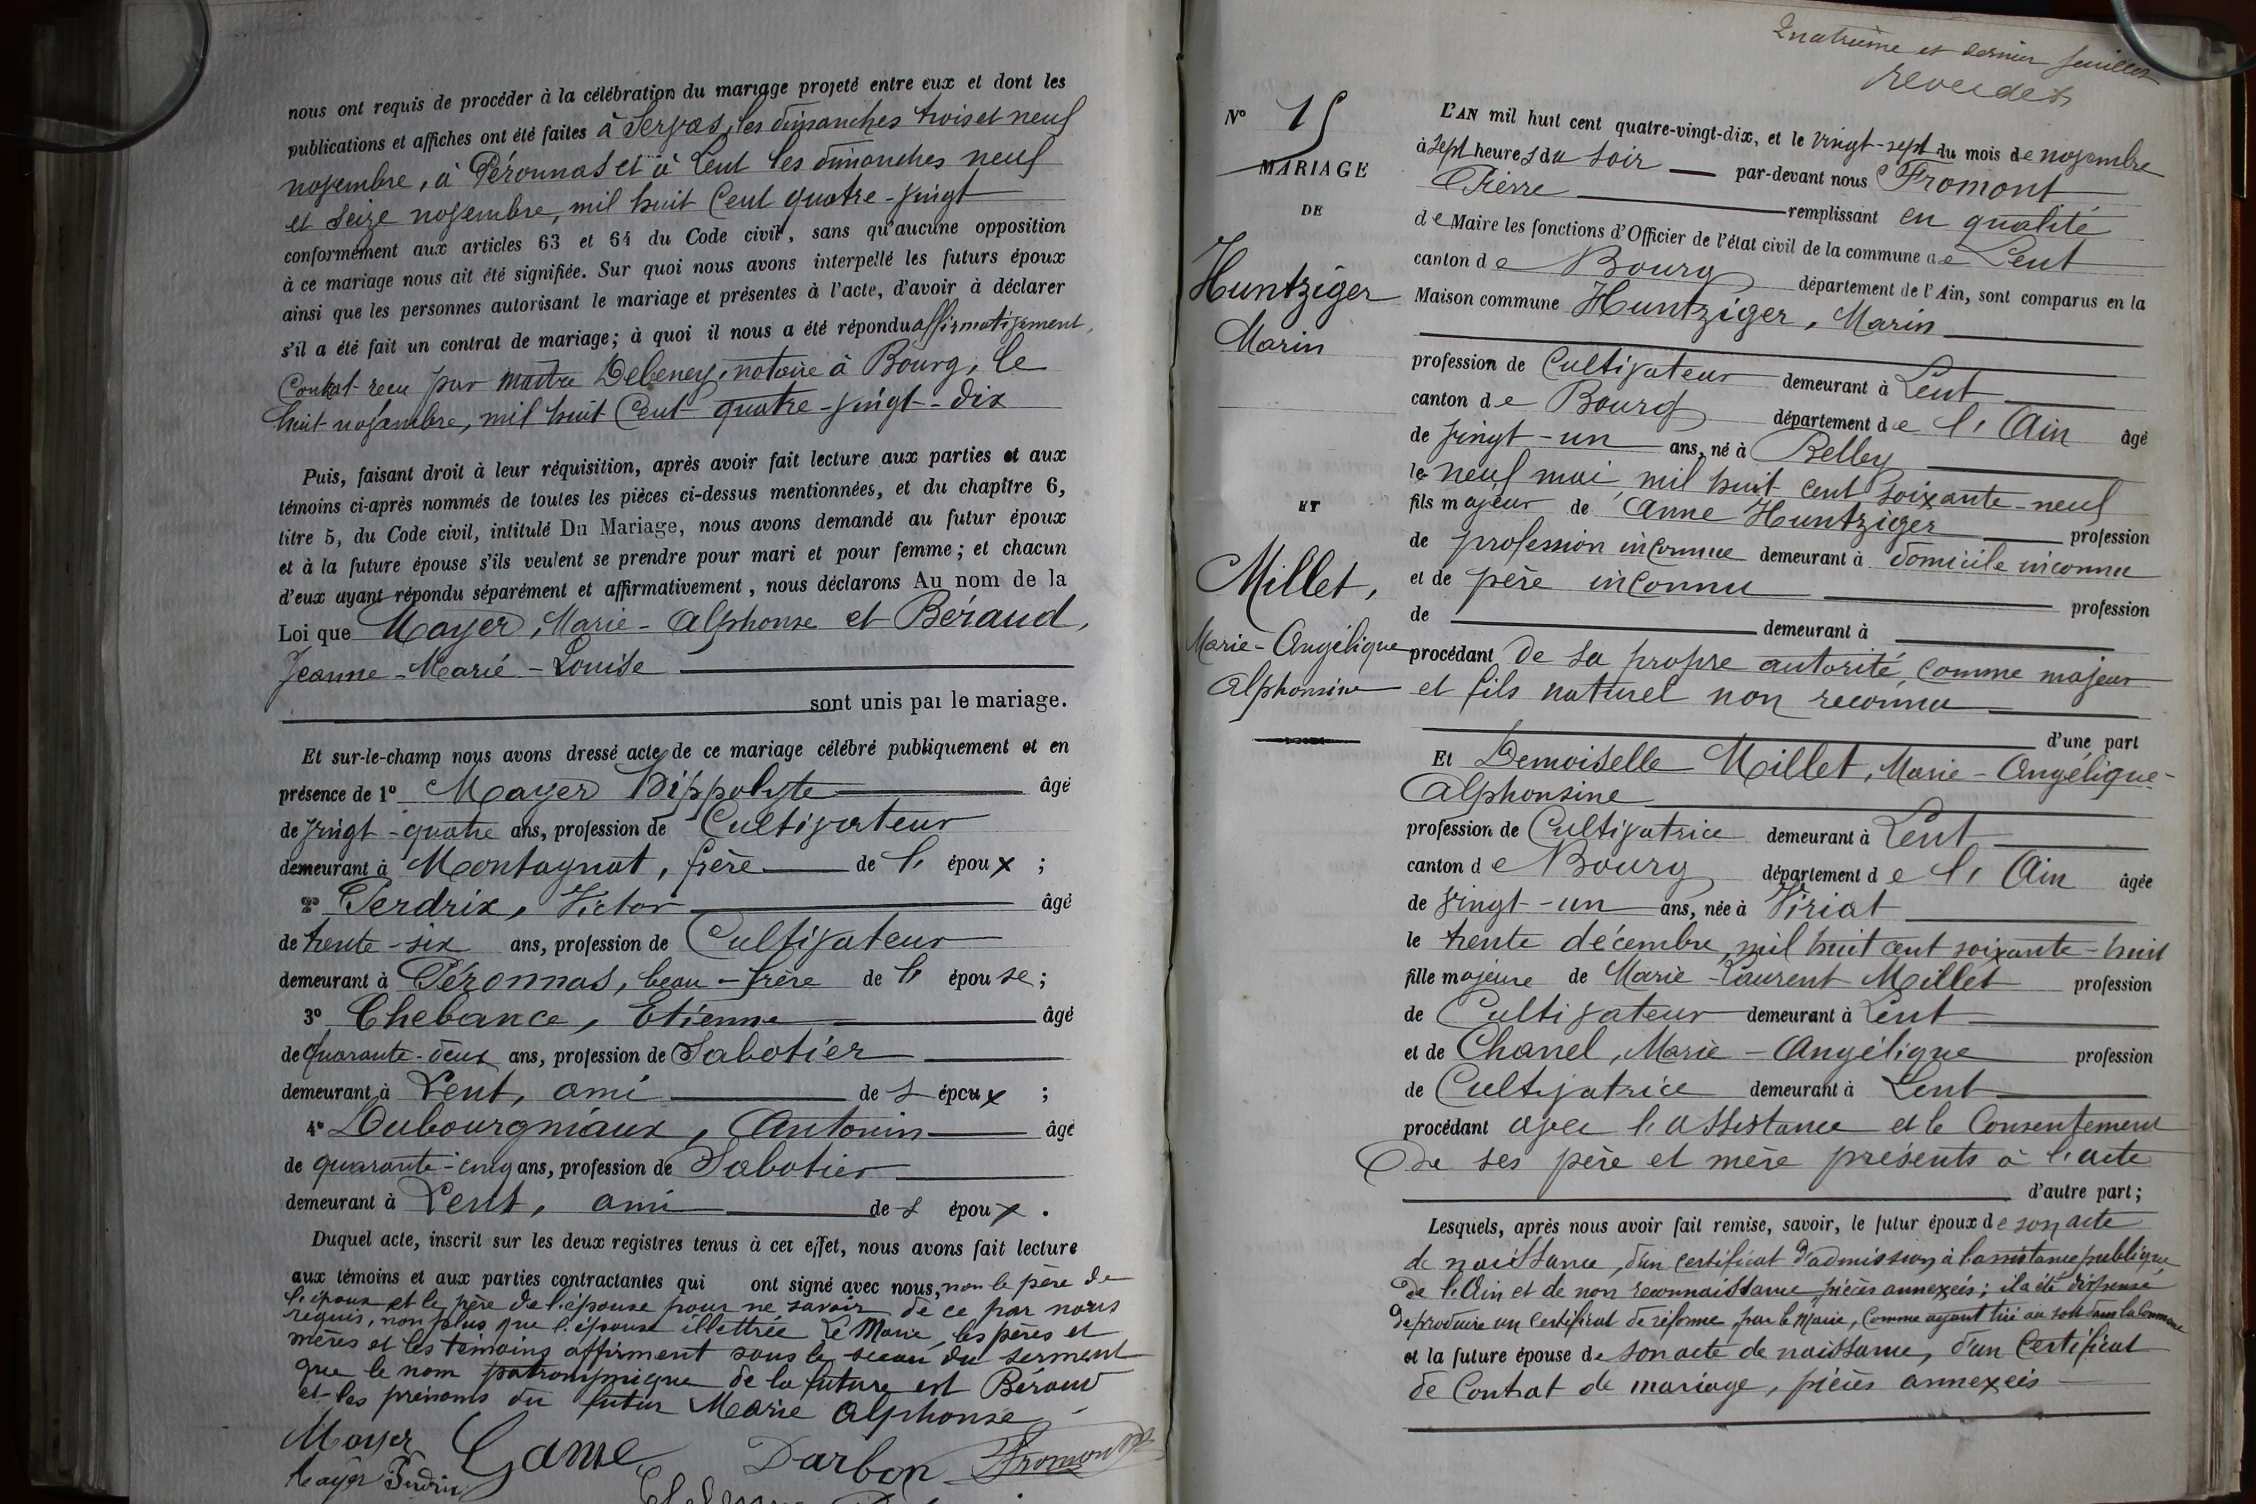 nous ont requis de procéder à la célébration du mariage projeté entre eux et dont les
publications et affiches ont été faites à Servas, les dimanches trois et neuf
novembre, à Péronnas et à Lent les dimanches neuf
et seize novembre, mil huit cent quatre-vingt
conformément aux articles 63 et 64 du Code civil, sans qu'aucune opposition
à ce mariage nous ait été signifiée. Sur quoi nous avons interpellé les futurs époux
ainsi que les personnes autorisant le mariage et présentes à l'acte, d'avoir à déclarer
s'il a été fait un contrat de mariage; à quoi il nous a été répondu affirmativement,
Contrat reçu par maitre Debeney, notaire à Bourg, le
huit novembre, mil huit cent quatre-vingt-dix
Puis, faisant droit à leur réquisition, après avoir fait lecture aux parties et aux
témoins ci-après nommés de toutes les pièces ci-dessus mentionnées, et du chapitre 6,
titre 5, du Code civil, intitulé Du Mariage, nous avons demandé au futur époux
et à la future épouse s'ils veulent se prendre pour mari et pour femme; et chacun
d'eux ayant répondu séparément et affirmativement, nous déclarons Au nom de la
Loi que Mayer, Marie-Alphonse et Béraud,
Jeanne-Marie-Louise
sont unis par le mariage.
Et sur-le-champ nous avons dressé acte de ce mariage célébré publiquement et en
présence de 1° Mayer Hippolyte âgé
de vingt-quatre ans, profession de Cultivateur
demeurant à Montagnat, frère de l' époux ;
2° Perdrix, Victor âgé
de trente-six ans, profession de Cultivateur
demeurant à Péronnas, beau-frère de l' épouse ;
3° Chebance, Etienne âgé
de quarante-deux ans, profession de Sabotier
demeurant à Lent, ami de s époux ;
4° Dubourgniaux, Antonin âgé
de quarante-cinq ans, profession de Sabotier
demeurant à Lent, ami de s époux .
Duquel acte, inscrit sur les deux registres tenus à cet effet, nous avons fait lecture
aux témoins et aux parties contractantes qui ont signé avec nous, non le père de
l'époux et le père de l'épouse pour ne savoir de ce par nous
requis, non plus que l'épouse illettrée Le Marié, les pères et
mères et les témoins affirment sous le sceau du serment
que le nom patronymique de la future est Béraud
et les prénoms du futur Marie Alphonse
Mayer Game Darbon Fromont
Mayer Perdrix
Quatrième et dernier feuillet
Reverdet
N° 15
MARIAGE
DE
Huntziger
Marin
ET
Millet,
Marie-Angélique
Alphonsine
L'AN mil huit cent quatre-vingt-dix, et le vingt-sept du mois de novembre
à sept heures du soir par-devant nous Fromont
Pierre remplissant en qualité
de Maire les fonctions d'Officier de l'état civil de la commune de Lent
canton de Bourg département de l'Ain, sont comparus en la
Maison commune Huntziger, Marin
profession de Cultivateur demeurant à Lent
canton de Bourg département de l'Ain âgé
de vingt-un ans, né à Belley
le neuf mai mil huit cent soixante-neuf
fils majeur de Anne Huntziger profession
de profession inconnue demeurant à domicile inconnu
et de père inconnu profession
de demeurant à
procédant de sa propre autorité, comme majeur
et fils naturel non reconnu
d'une part
Et Demoiselle Millet, Marie-Angélique-
Alphonsine
profession de Cultivatrice demeurant à Lent
canton de Bourg département de l'Ain âgée
de vingt-un ans, née à Viriat
le trente décembre, mil huit cent soixante-huit
fille majeure de Marie-Laurent Millet profession
de Cultivateur demeurant à Lent
et de Chanel, Marie-Angélique profession
de Cultivatrice demeurant à Lent
procédant avec l'assistance et le Consentement
De ses père et mère présents à l'acte
d'autre part;
Lesquels, après nous avoir fait remise, savoir, le futur époux de son acte
de naissance, d'un certificat d'admission à l'assistance publique
de l'Ain et de non reconnaissance pièces annexées; il a été dispensé
de produire un certificat de réforme, par le Maire, comme ayant tiré au sort dans la Commune
et la future épouse de son acte de naissance, d'un Certificat
de Contrat de mariage, pièces annexées